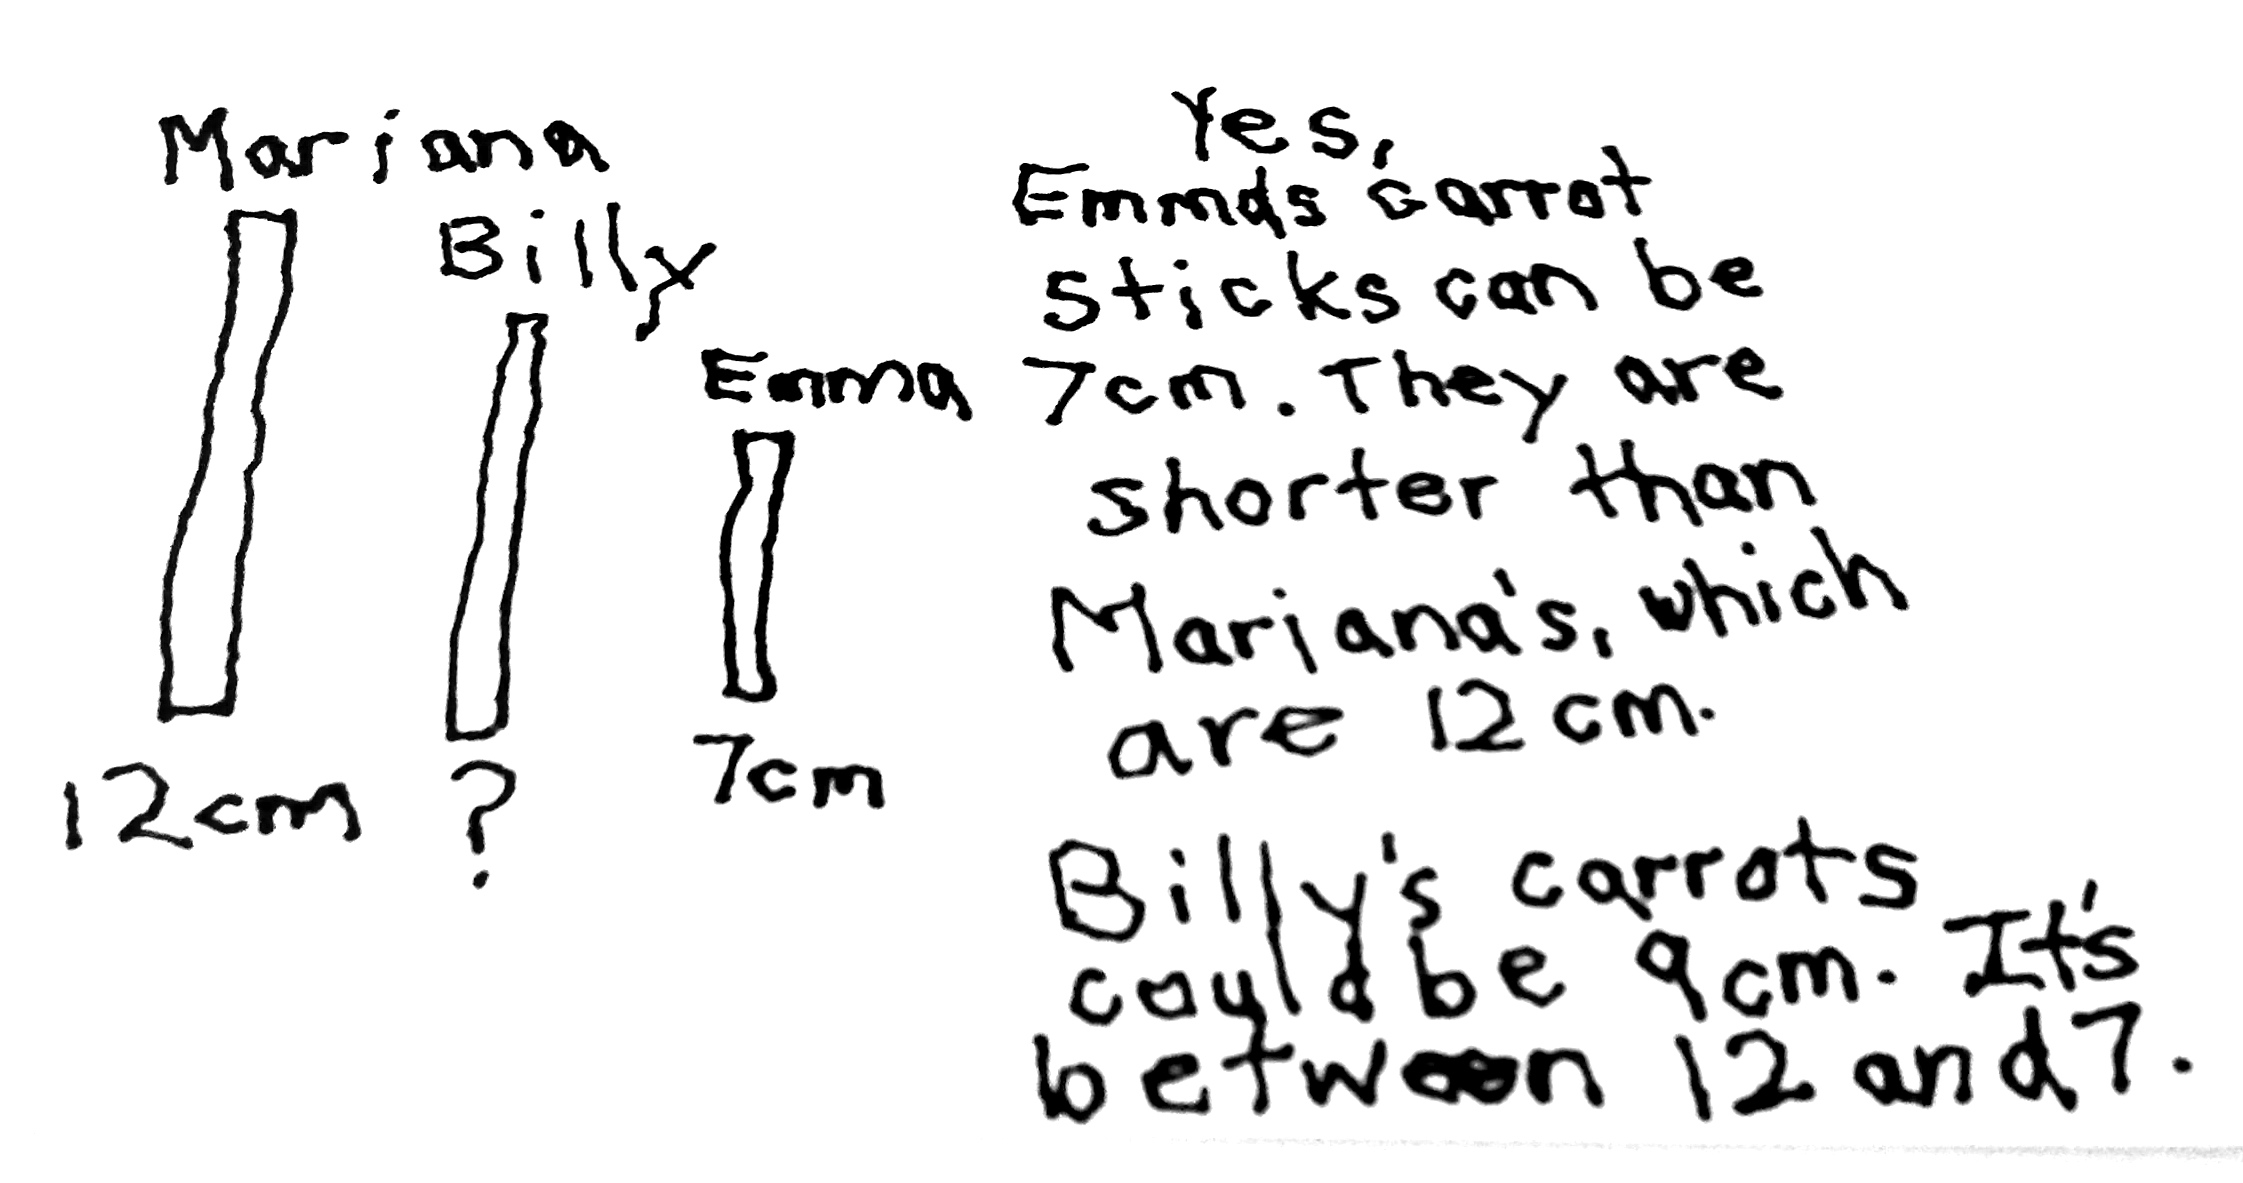 Mariana
Billy
Emma
12cm
?
7cm
Yes,
Emma's carrot
sticks can be
7cm. They are
shorter than
Mariana's, which
are 12 cm.
Billy's carrots
could be 9cm. It's
between 12 and 7.